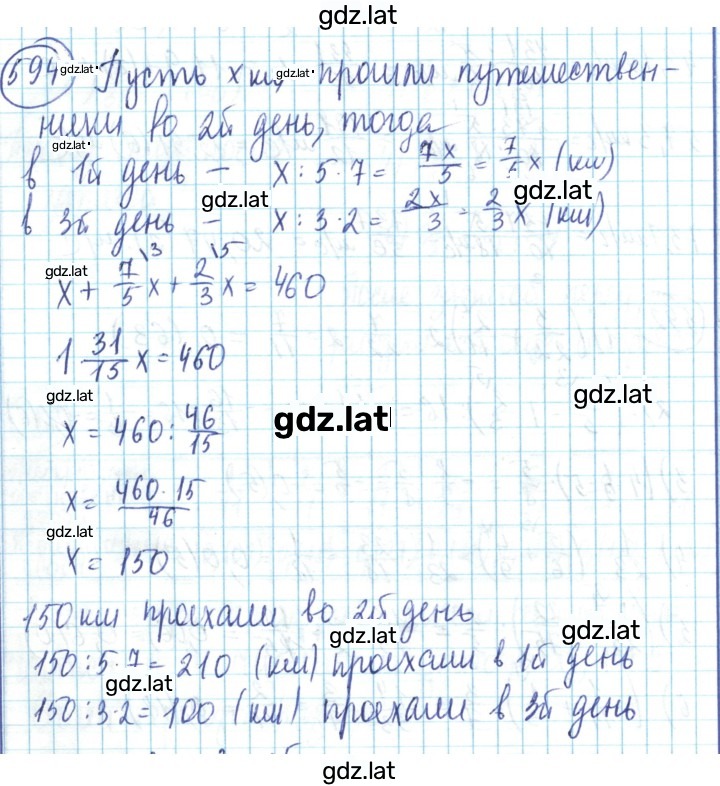 gdz.lat
594. gdz.lat Пусть x км, gdz.lat прошли путешествен-
ники во 2й день, тогда
gdz.lat
в 1й день – x : 5 · 7 = 7x/5 = 7/5 x (км)
gdz.lat gdz.lat
в 3й день – x : 3 · 2 = 2x/3 = 2/3 x (км)
gdz.lat
x + 7/5 \3 x + 2/3 \5 x = 460
1 31/15 x = 460
gdz.lat gdz.lat
gdz.lat
x = 460 : 46/15
x = 460 · 15/46
gdz.lat
x = 150
150 км проехали во 2й день
gdz.lat gdz.lat
150 : 5 · 7 = 210 (км) проехали в 1й день
gdz.lat
150 : 3 · 2 = 100 (км) проехали в 3й день
gdz.lat